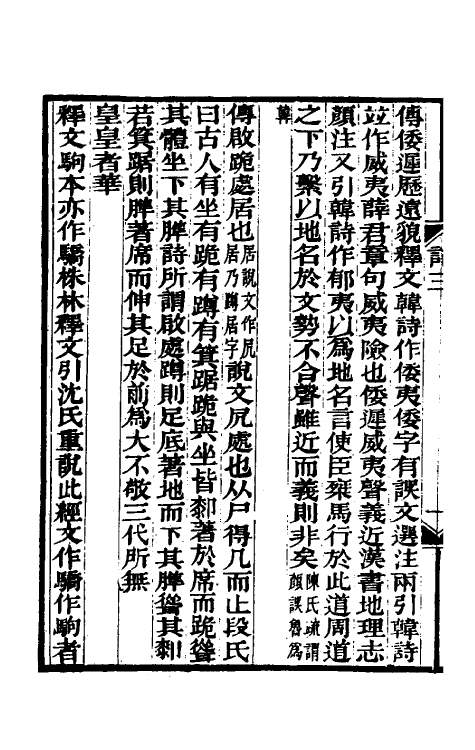 傳倭遲歷遠貌釋文韓詩作倭夷倭字有誤文選注兩引韓詩
竝作威夷薛君章句威夷險也倭遲威夷聲義近漢書地理志
顏注又引韓詩作郁夷以為地名言使臣乘馬行於此道周道
之下乃繫以地名於文勢不合聲雖近而義則非矣陳氏疏謂顏誤魯為
韓
傳啟跪處居也居說文作凥居乃蹲居字說文凥處也从尸得几而止段氏
曰古人有坐有跪有蹲有箕踞跪與坐皆厀著於席而跪聳
其體坐下其脾詩所謂啟處蹲則足底著地而下其脾聳其厀
若箕踞則脾著席而伸其足於前為大不敬三代所無
皇皇者華
釋文駒本亦作驕株林釋文引沈氏重說此經文作驕作駒者
詩三